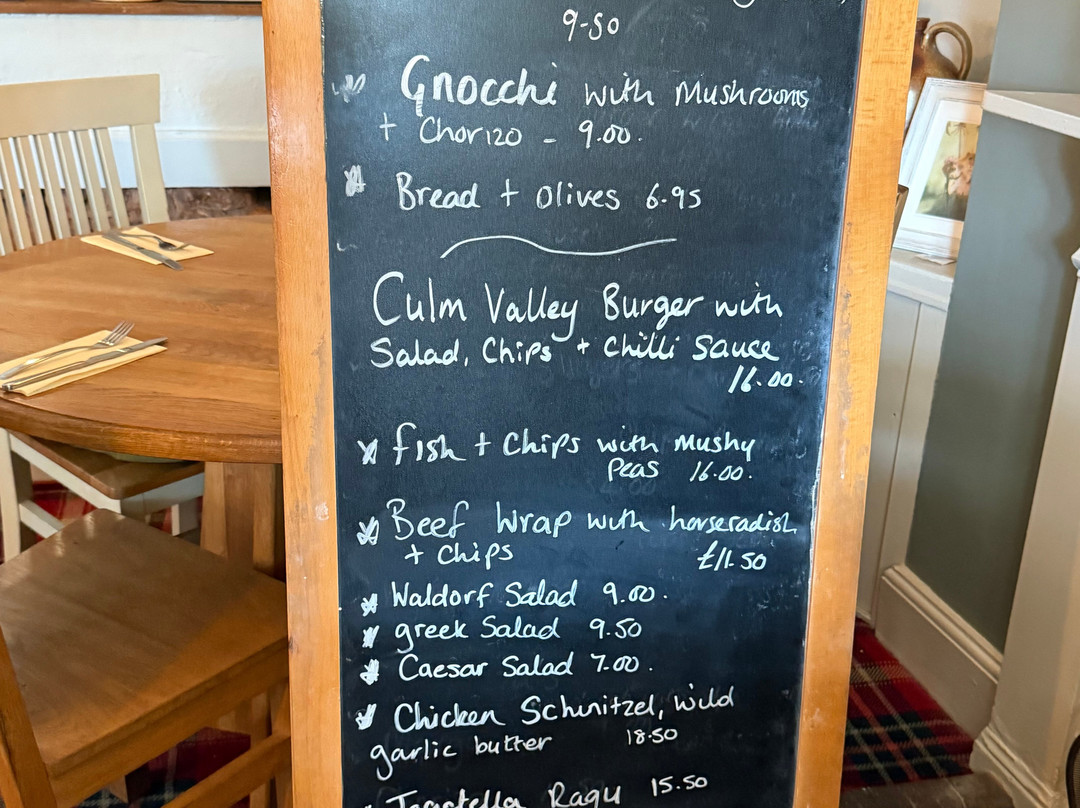 9-50
Gnocchi with Mushrooms
+ Chorizo - 9.00.
Bread + Olives 6.95
Culm Valley Burger with
Salad, Chips + Chilli Sauce
16.00.
fish + Chips with Mushy
Peas 16.00.
Beef Wrap with horseradish
+ Chips £11.50
Waldorf Salad 9.00.
greek Salad 9.50
Caesar Salad 7.00.
Chicken Schnitzel, wild
garlic butter 18.50
Ragu 15.50